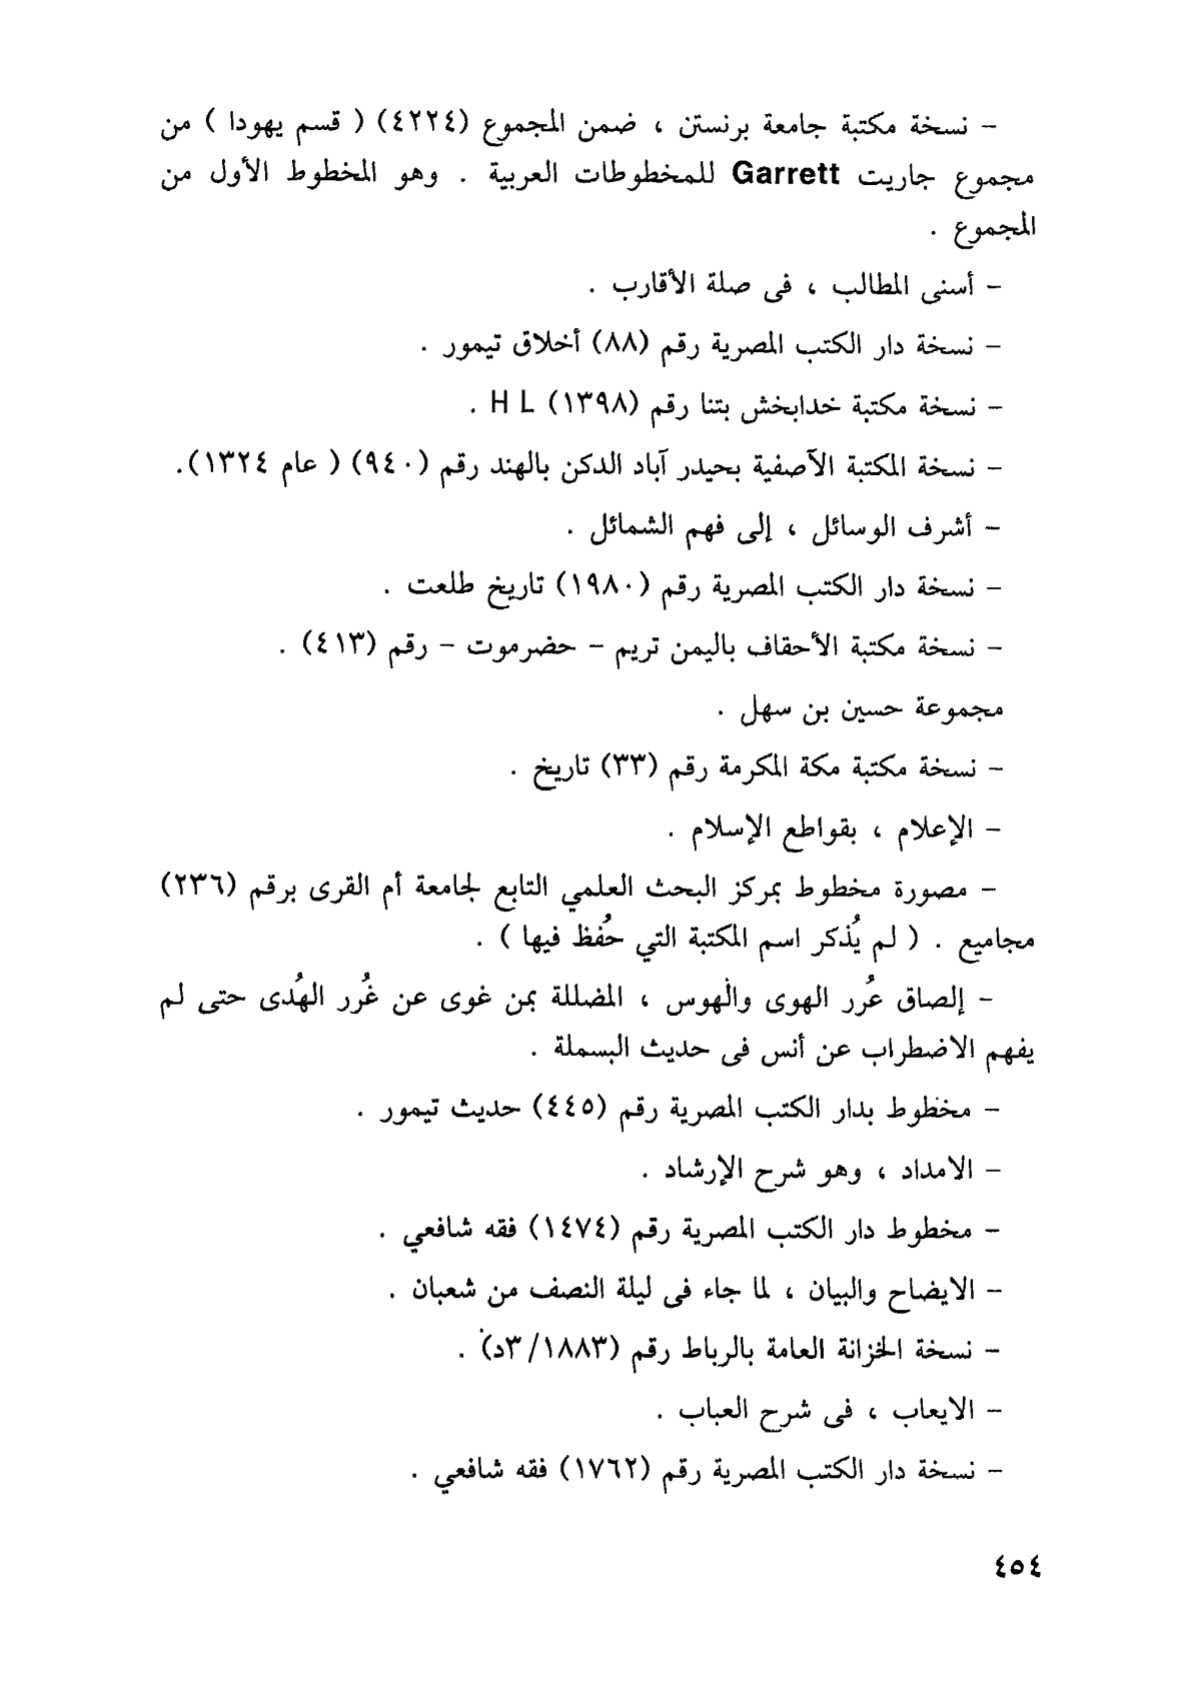 – نسخة مكتبة جامعة برنستن ، ضمن المجموع (٤٢٢٤) ( قسم يهودا ) من
مجموع جاريت Garrett للمخطوطات العربية . وهو المخطوط الأول من
المجموع .
– أسنى المطالب ، فى صلة الأقارب .
– نسخة دار الكتب المصرية رقم (٨٨) أخلاق تيمور .
– نسخة مكتبة خدابخش بتنا رقم (١٣٩٨) H L .
– نسخة المكتبة الآصفية بحيدر آباد الدكن بالهند رقم (٩٤٠) ( عام ١٣٢٤).
– أشرف الوسائل ، إلى فهم الشمائل .
– نسخة دار الكتب المصرية رقم (١٩٨٠) تاريخ طلعت .
– نسخة مكتبة الأحقاف باليمن تريم – حضرموت – رقم (٤١٣) .
مجموعة حسين بن سهل .
– نسخة مكتبة مكة المكرمة رقم (٣٣) تاريخ .
– الإعلام ، بقواطع الإسلام .
– مصورة مخطوط بمركز البحث العلمي التابع لجامعة أم القرى برقم (٢٣٦)
مجاميع . ( لم يُذكر اسم المكتبة التي حُفظ فيها ) .
– إلصاق عُرر الهوى والْهوس ، المضللة بمن غوى عن غُرر الهُدى حتى لم
يفهم الاضطراب عن أنس فى حديث البسملة .
– مخطوط بدار الكتب المصرية رقم (٤٤٥) حديث تيمور .
– الامداد ، وهو شرح الإرشاد .
– مخطوط دار الكتب المصرية رقم (١٤٧٤) فقه شافعي .
– الايضاح والبيان ، لما جاء فى ليلة النصف من شعبان .
– نسخة الخزانة العامة بالرباط رقم (١٨٨٣/٣د) .
– الايعاب ، فى شرح العباب .
– نسخة دار الكتب المصرية رقم (١٧٦٢) فقه شافعي .
٤٥٤